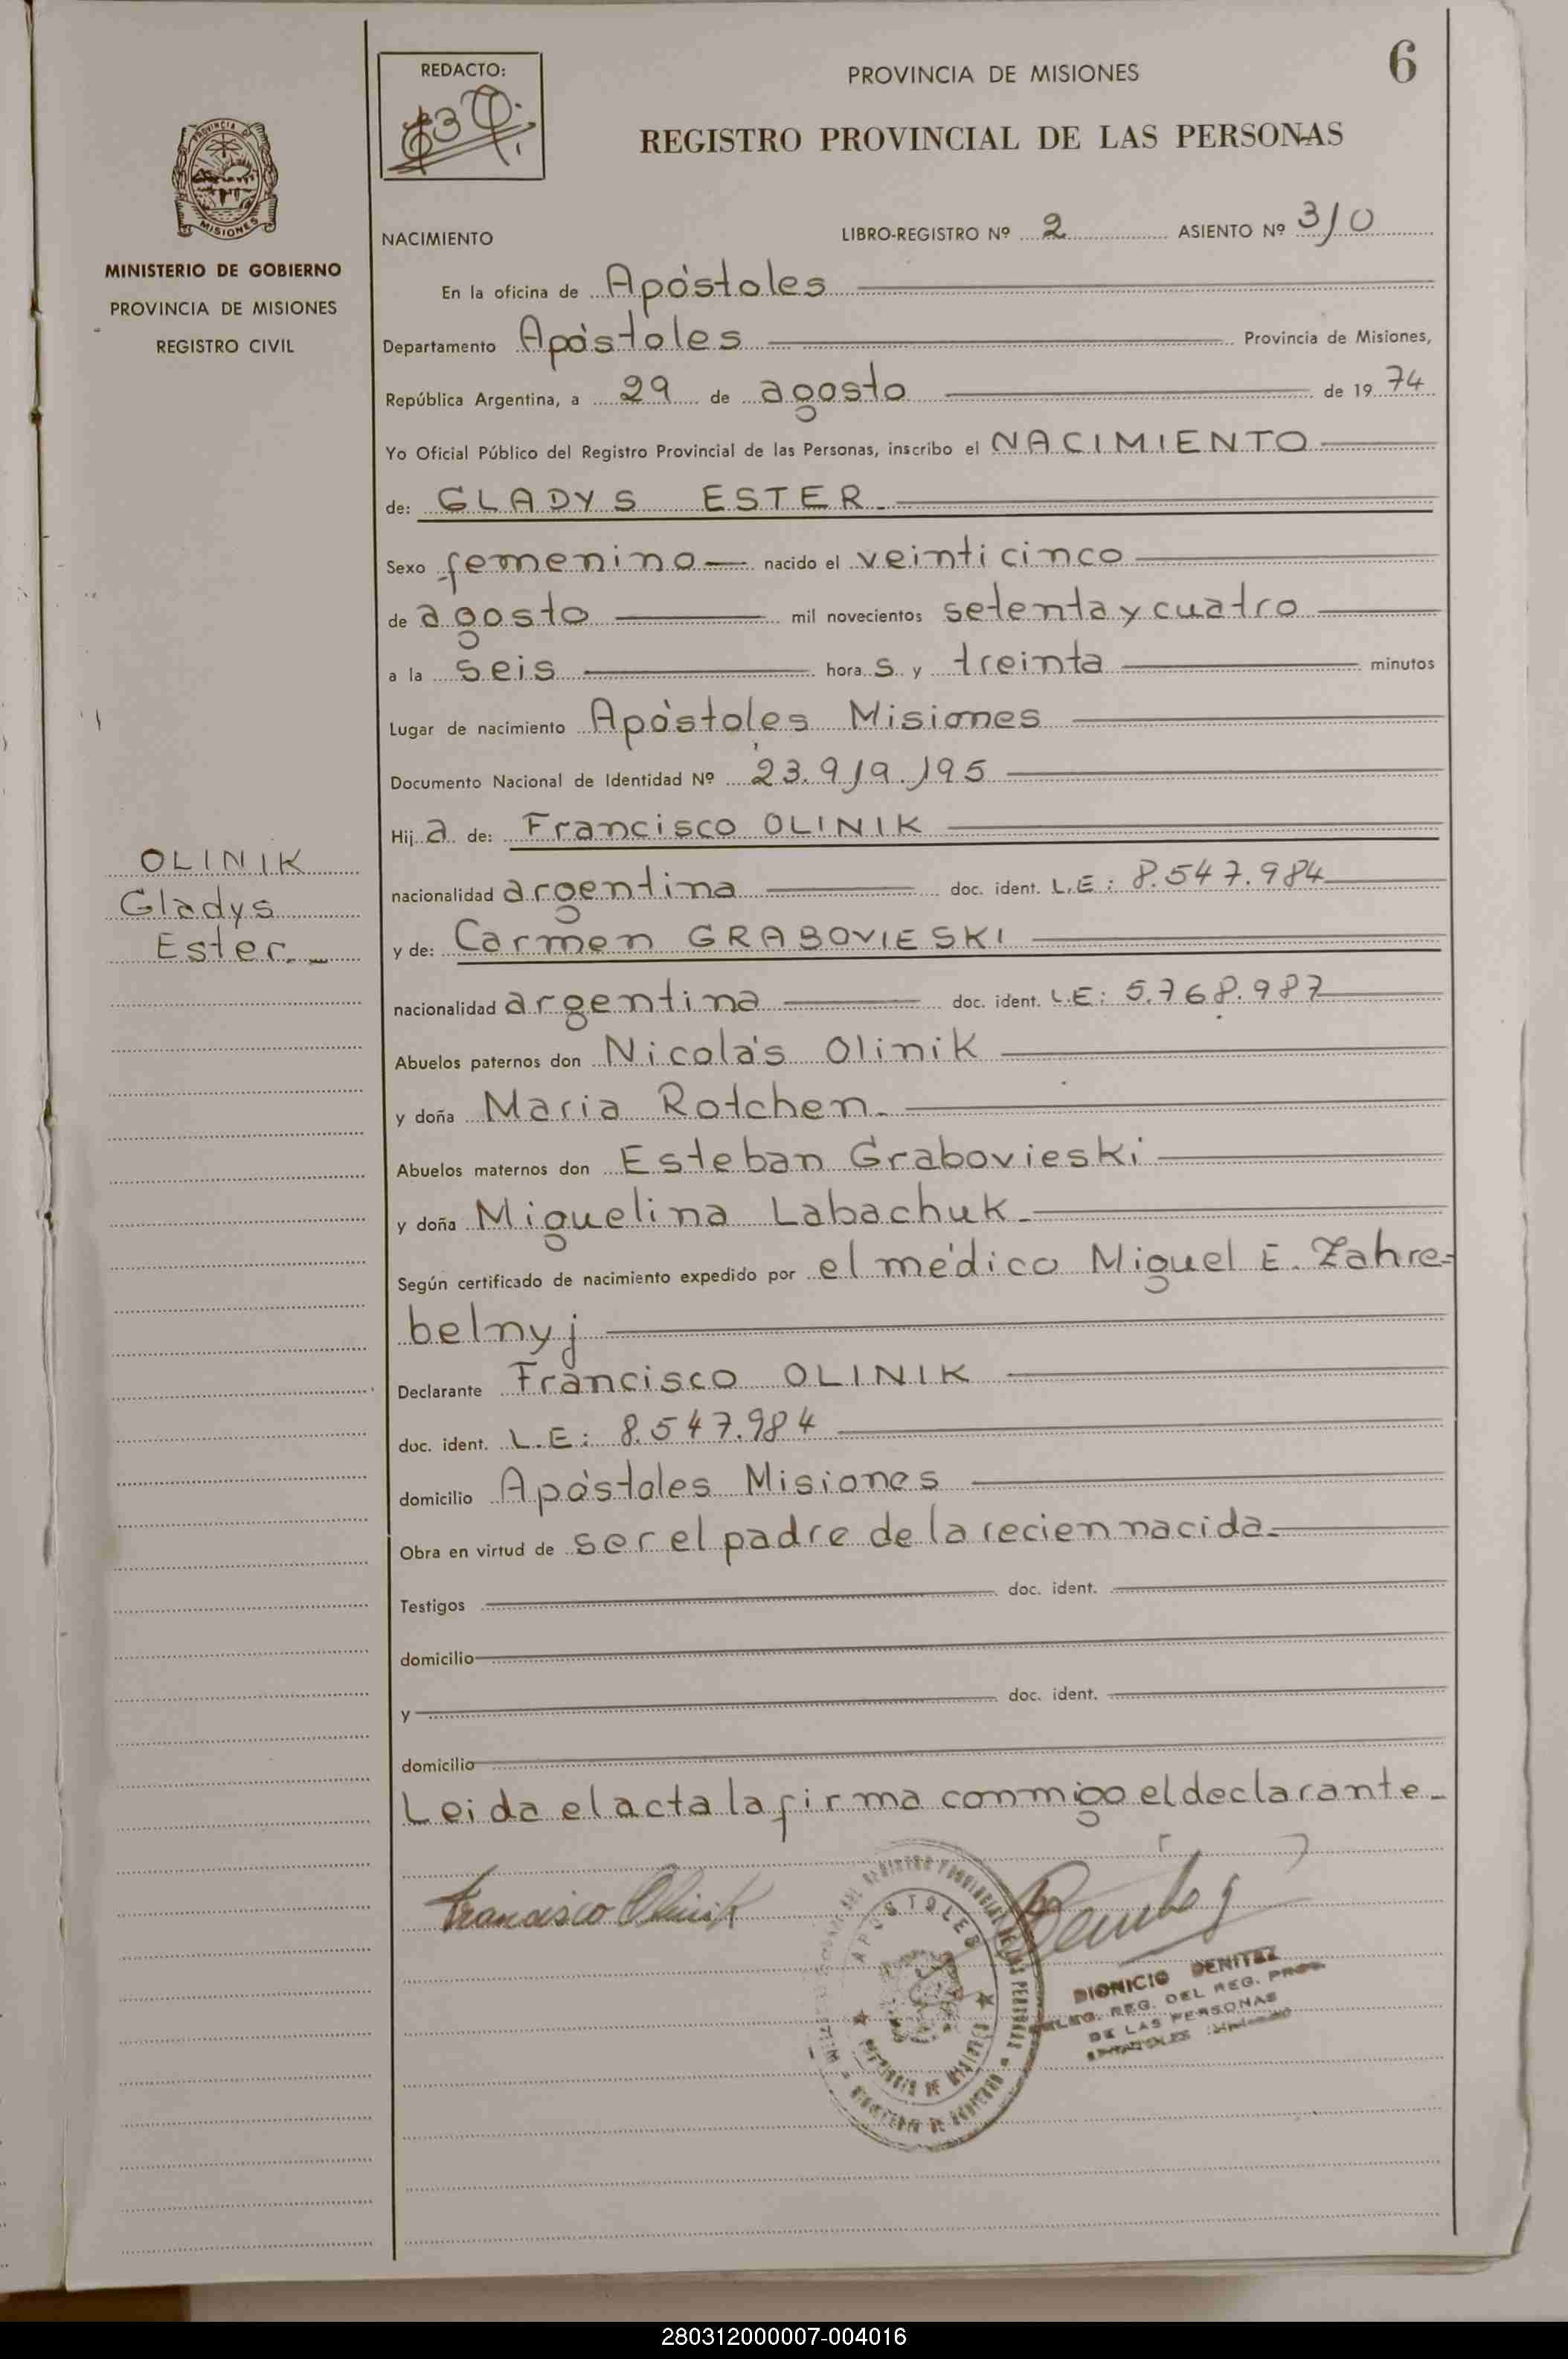 REDACTO:
PROVINCIA DE MISIONES
6
REGISTRO PROVINCIAL DE LAS PERSONAS
PROVINCIA DE
MISIONES
MINISTERIO DE GOBIERNO
PROVINCIA DE MISIONES
REGISTRO CIVIL
NACIMIENTO LIBRO-REGISTRO Nº 2 ASIENTO Nº 310
En la oficina de Apóstoles
Departamento Apóstoles Provincia de Misiones,
República Argentina, a 29 de agosto de 19 74
Yo Oficial Público del Registro Provincial de las Personas, inscribo el NACIMIENTO
de: GLADYS ESTER.
Sexo femenino nacido el veinticinco
de agosto mil novecientos setenta y cuatro
a la seis hora s y treinta minutos
Lugar de nacimiento Apóstoles Misiones
Documento Nacional de Identidad Nº 23.919.195
Hij a de: Francisco OLINIK
nacionalidad argentina doc. ident. L.E: 8.547.984
y de: Carmen GRABOVIESKI
nacionalidad argentina doc. ident. L.E: 5.768.987
Abuelos paternos don Nicolás Olinik
y doña Maria Rotchen.
Abuelos maternos don Esteban Grabovieski
y doña Miguelina Labachuk.
Según certificado de nacimiento expedido por el médico Miguel E. Zahre=
belnyj
Declarante Francisco OLINIK
doc. ident. L.E: 8.547.984
domicilio Apóstoles Misiones
Obra en virtud de ser el padre de la recien nacida.
Testigos doc. ident.
domicilio
y doc. ident.
domicilio
Leida el acta la firma conmigo el declarante
OLINIK
Gladys
Ester.
Francisco Olinik
Benitez
APOSTOLES
DIONICIO BENITEZ
DELEG. REG. DEL REG. PROV.
DE LAS PERSONAS
APOSTOLES
280312000007-004016